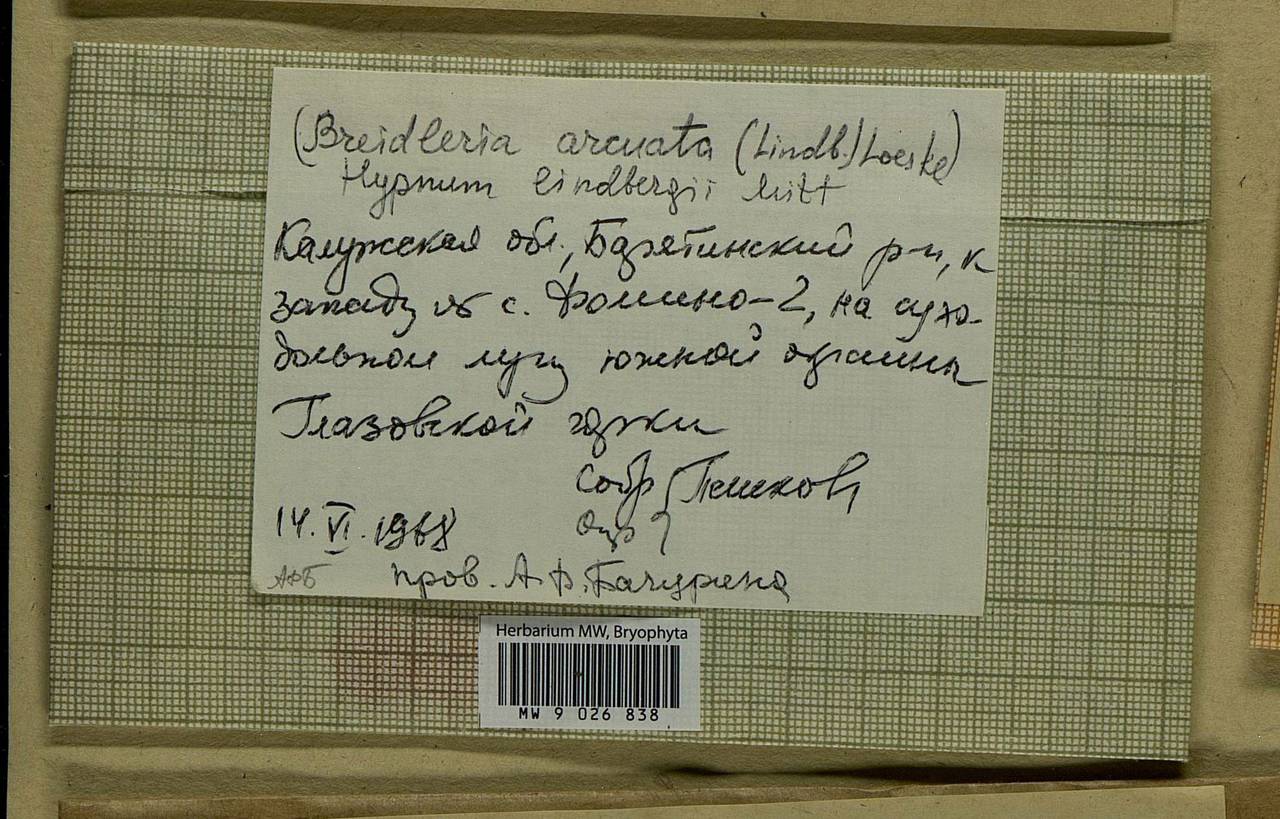 (Breidleria arcuata (Lindb.) Loeske)
Hypnum lindbergii Mitt
Калужская обл., Барятинский р-н, к
западу от с. Фомино-2, на сухо-
дольном лугу южной окраины
Глазовской горки
собр
опр } Пешкова
14.VI.1968
АФБ пров. А.Ф. Бачурина
Herbarium MW, Bryophyta
MW 9 026 838